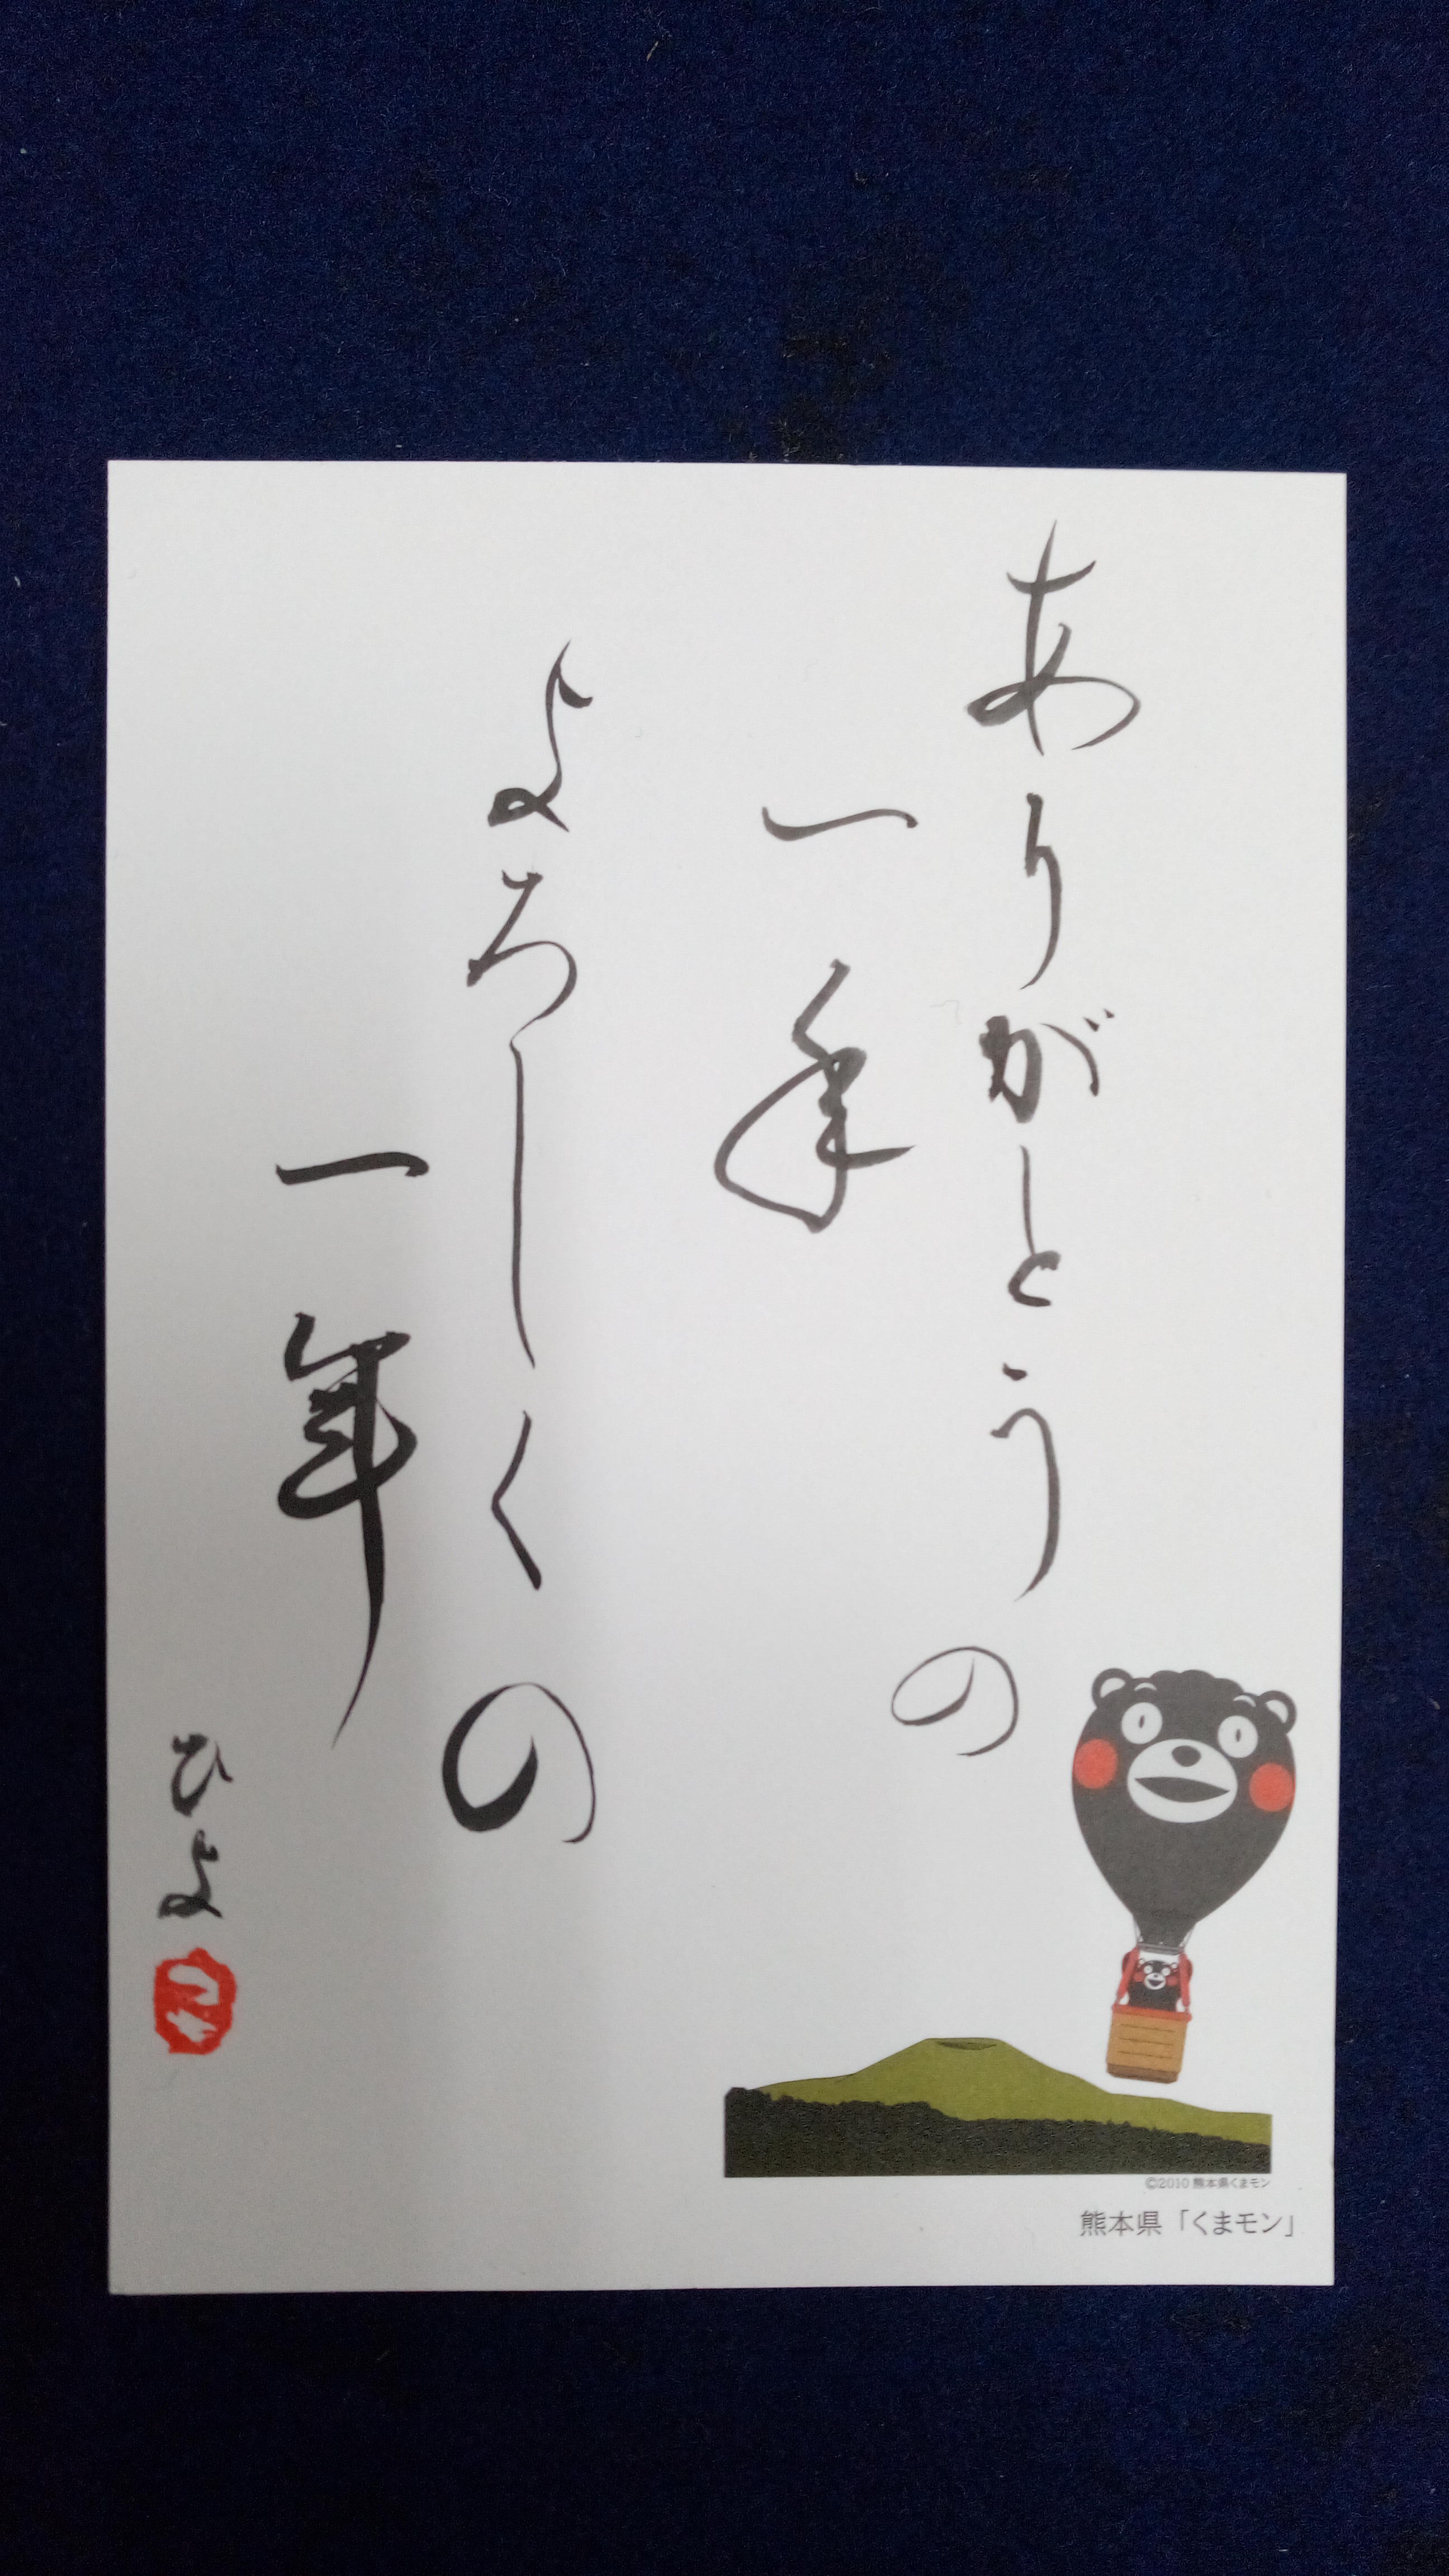 ありがとうの
一年
よろしくの
一年
ひよ
©2010 熊本県くまモン
熊本県「くまモン」